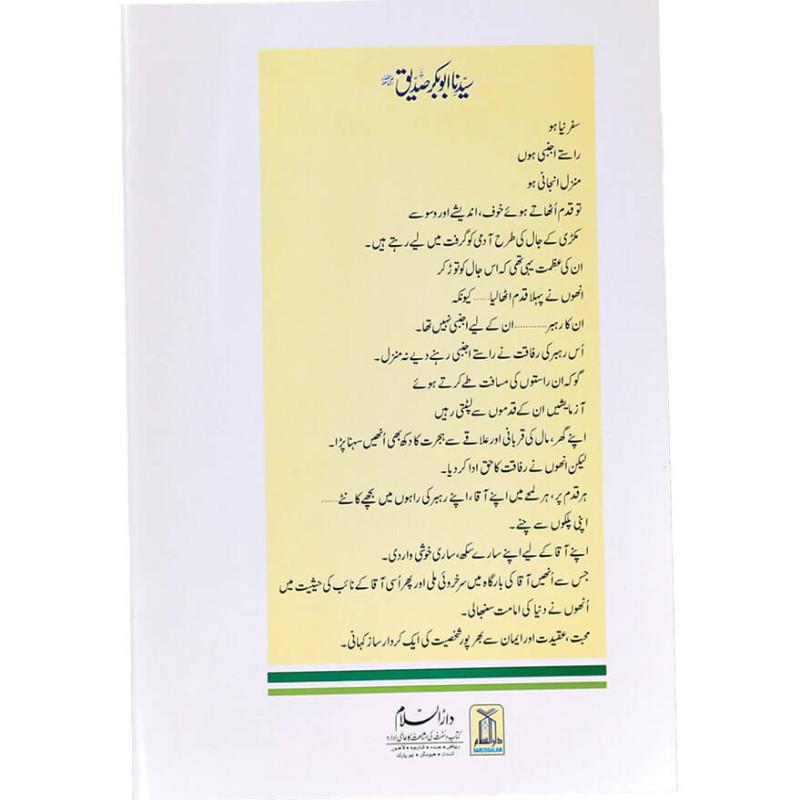 سیّدنا ابوبکر صدّیق
سفر نیا ہو
راستے اجنبی ہوں
منزل انجانی ہو
تو قدم اُٹھاتے ہوئے خوف، اندیشے اور وسوسے
مکڑی کے جال کی طرح آدمی کو گرفت میں لیے رہتے ہیں۔
ان کی عظمت یہی تھی کہ اس جال کو توڑ کر
انھوں نے پہلا قدم اٹھا لیا...... کیونکہ
ان کا رہبر............ان کے لیے اجنبی نہیں تھا۔
اُس رہبر کی رفاقت نے راستے اجنبی رہنے دیے نہ منزل۔
گو کہ ان راستوں کی مسافت طے کرتے ہوئے
آزمایشیں ان کے قدموں سے لپٹتی رہیں
اپنے گھر، مال کی قربانی اور علاقے سے ہجرت کا دکھ بھی اُنھیں سہنا پڑا۔
لیکن انھوں نے رفاقت کا حق ادا کر دیا۔
ہر قدم پر، ہر لمحے میں اپنے آقا، اپنے رہبر کی راہوں میں بچھے کانٹے......
اپنی پلکوں سے چنے۔
اپنے آقا کے لیے اپنے سارے سکھ، ساری خوشی وار دی۔
جس سے اُنھیں آقا کی بارگاہ میں سرخروئی ملی اور پھر اُسی آقا کے نائب کی حیثیت میں
اُنھوں نے دنیا کی امامت سنبھالی۔
محبت، عقیدت اور ایمان سے بھرپور شخصیت کی ایک کردار ساز کہانی۔
دارُالسلام
کتاب و سنّت کی اشاعت کا عالمی ادارہ
ریاض • جدہ • شارجہ • لاہور
لندن • ہیوسٹن • نیویارک
دارالسلام
DARUSSALAM